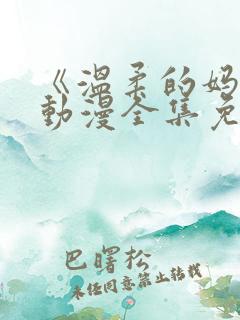 《温柔的妈
動漫全集免
巴曙松
未经同意禁止转载